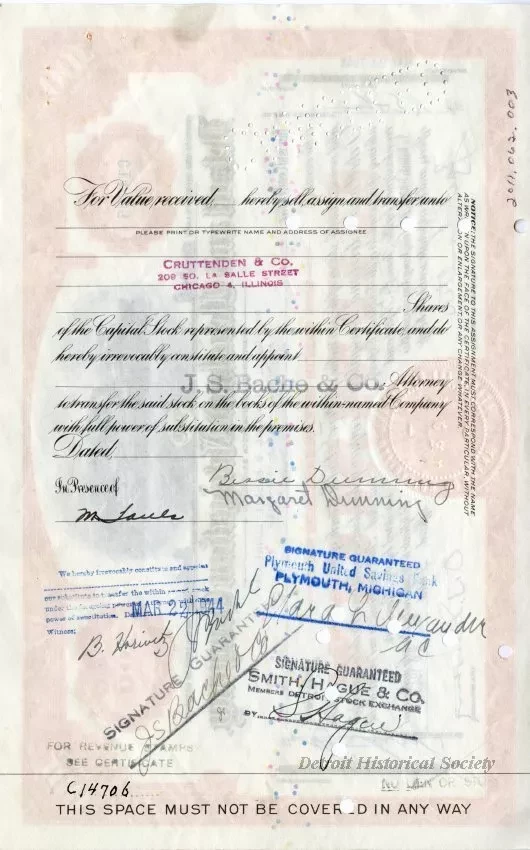 2011.062.003
NOTICE: THE SIGNATURE TO THIS ASSIGNMENT MUST CORRESPOND WITH THE NAME
AS WR N UPON THE FACE OF THE CERTIFICATE, IN EVERY PARTICULAR, WITHOUT
ALTER ON OR ENLARGEMENT, OR ANY CHANGE WHATEVER.
For Value received, hereby sell, assign and transfer unto
PLEASE PRINT OR TYPEWRITE NAME AND ADDRESS OF ASSIGNEE
CRUTTENDEN & CO.
209 SO. LA SALLE STREET
CHICAGO 4, ILLINOIS
Shares
of the Capital Stock represented by the within Certificate, and do
hereby irrevocably constitute and appoint
J. S. Bache & Co. Attorney
to transfer the said stock on the books of the within-named Company
with full power of substitution in the premises.
Dated,
Bessie Dunning
In Presence of
Margaret Dunning
We hereby irrevocably constitute and appoint
our substitute to transfer the within stock
under the foregoing power
power of substitution.
MAR 22 1944
Witness:
B. Horwitz
SIGNATURE GUARANTEED
Plymouth United Savings Bank
PLYMOUTH, MICHIGAN
SIGNATURE GUARANTEED
J S Bache & Co
SIGNATURE GUARANTEED
SMITH, HAGUE & CO.
MEMBERS DETROIT STOCK EXCHANGE
BY
FOR REVENUE STAMPS
SEE CERTIFICATE
Detroit Historical Society
C14706
THIS SPACE MUST NOT BE COVERED IN ANY WAY